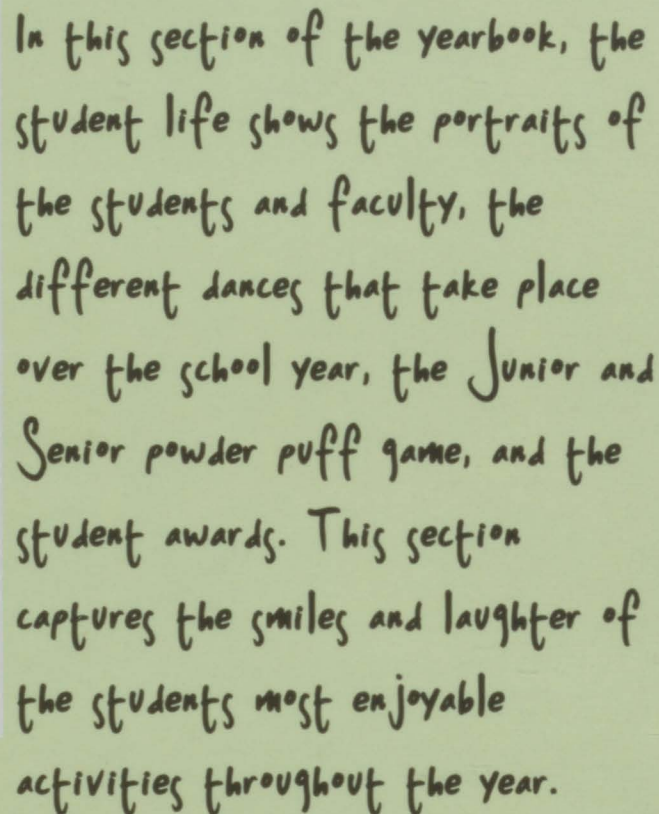 In this section of the yearbook, the
student life shows the portraits of
the students and faculty, the
different dances that take place
over the school year, the Junior and
Senior powder puff game, and the
student awards. This section
captures the smiles and laughter of
the students most enjoyable
activities throughout the year.